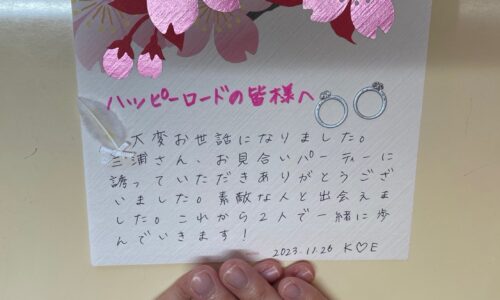 ハッピーロードの皆様へ
大変お世話になりました。
三浦さん、お見合いパーティーに
誘っていただきありがとうござ
いました。素敵な人と出会えま
した。これから2人で一緒に歩
んでいきます!
2023.11.26 K♡E